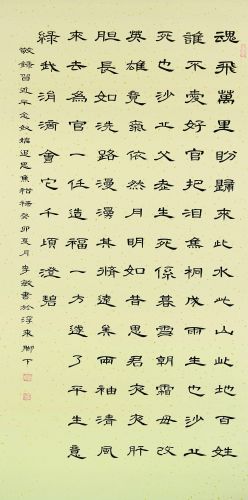 魂飛萬里盼歸來此水此山地百姓
誰不愛好官把淚焦桐成雨生也沙丘
死也沙丘父老生死係暮雪朝霜毋改
英雄意氣依然月明如昔思君夜夜肝
胆長如洗路漫漫其修遠矣兩袖清風
來去為官一任造福一方遂了平生意
綠我涓滴會它千頃澄碧
敬錄習近平念奴嬌追思焦裕祿癸卯夏月李敏書於浮來腳下